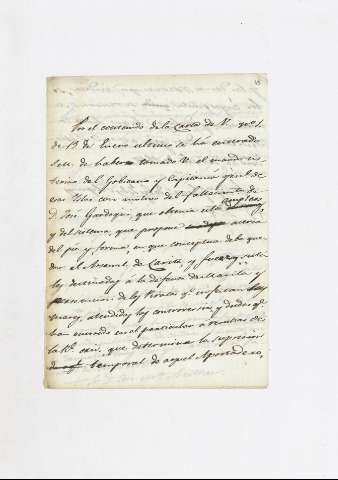 Por el contenido de la Carta de V. nº 1.
de 13 de Enero ultimo se ha enterado
S.M. de haber tomado V. el mando in-
terino del Gobierno y Capitania gral. de
esas Islas con motivo del fallecimto. de
D. José Gardoqui, que obtenia estos empleos
y del sistema, que propone acerca
del pie y forma, en que conceptua debe que-
dar el Arsenal de Cavite y fuerzas
destinadas a la defensa de Manila y
de los Piratas qe. infestan
mares, atendidas las controversias y dudas qe.
han mediado en el particular a resultas de
la Rl. orn. que determina la supresion
temporal de aquel Apostadero,